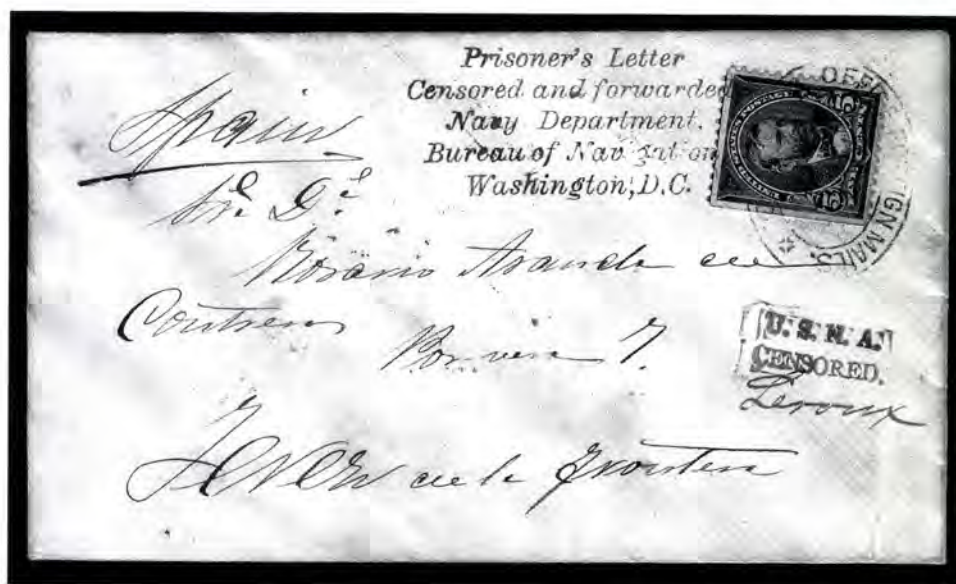 Prisoner's Letter
Censored and forwarded
Navy Department.
Bureau of Navigation
Washington, D.C.
Spain
Rosario Aranda de
Contreras
Porvera 7.
Jerez de la Frontera
U.S.N.A.
CENSORED.
Leroux
UNITED STATES POSTAGE
5 5
IGN MAILS.